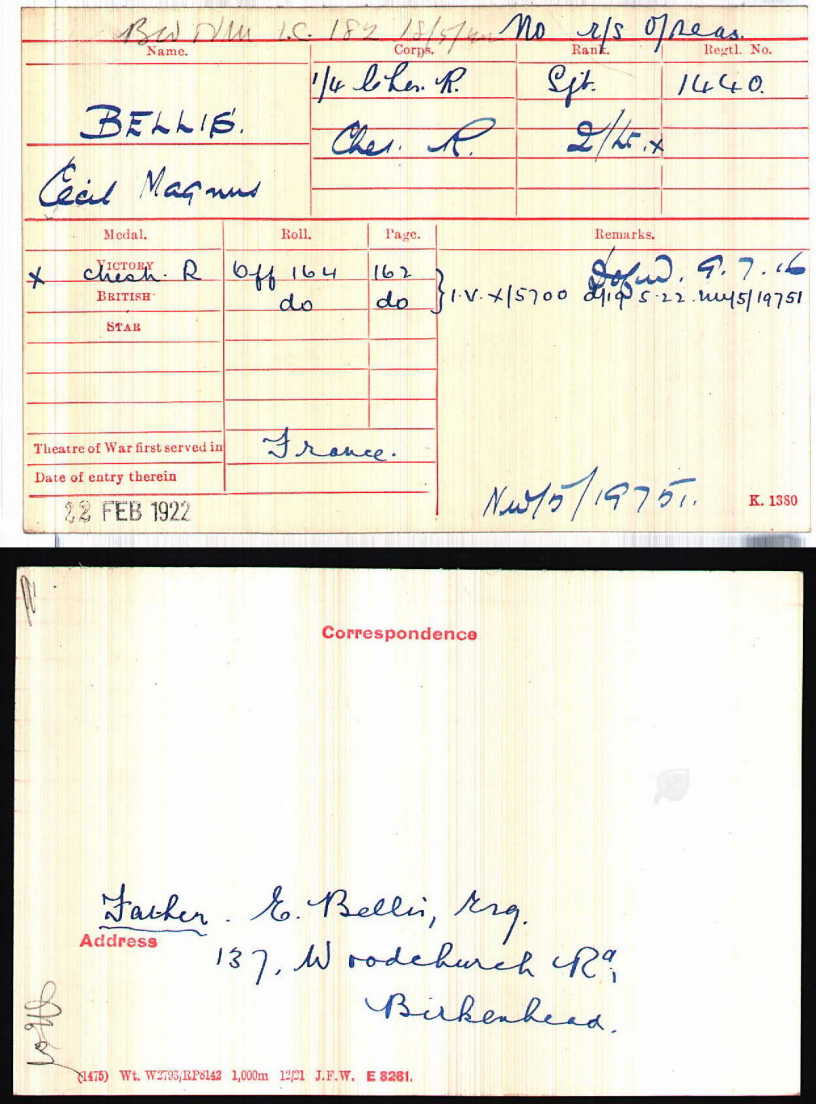 BW & VM I.C. 182 18/5/22 No r/s o/seas.
Name. Corps. Rank. Regtl. No.
1/4 Ches. R. Sjt. 1440.
BELLIS. Ches. R. 2/Lt. x
Cecil Magnus
Medal. Roll. Page. Remarks.
VICTORY x Chesh. R Off 164 162 D of W. 9.7.16
BRITISH do do } I.V. x/5700 d/19 5.22. NW/5/19751
STAR
Theatre of War first served in France.
Date of entry therein
22 FEB 1922 NW/5/19751. K. 1380
Correspondence
Father. E. Bellis, Esq.
Address
137, Woodchurch Rd,
Birkenhead.
(1475) Wt. W2793/RP8142 1,000m 12/21 J.F.W. E 8261.